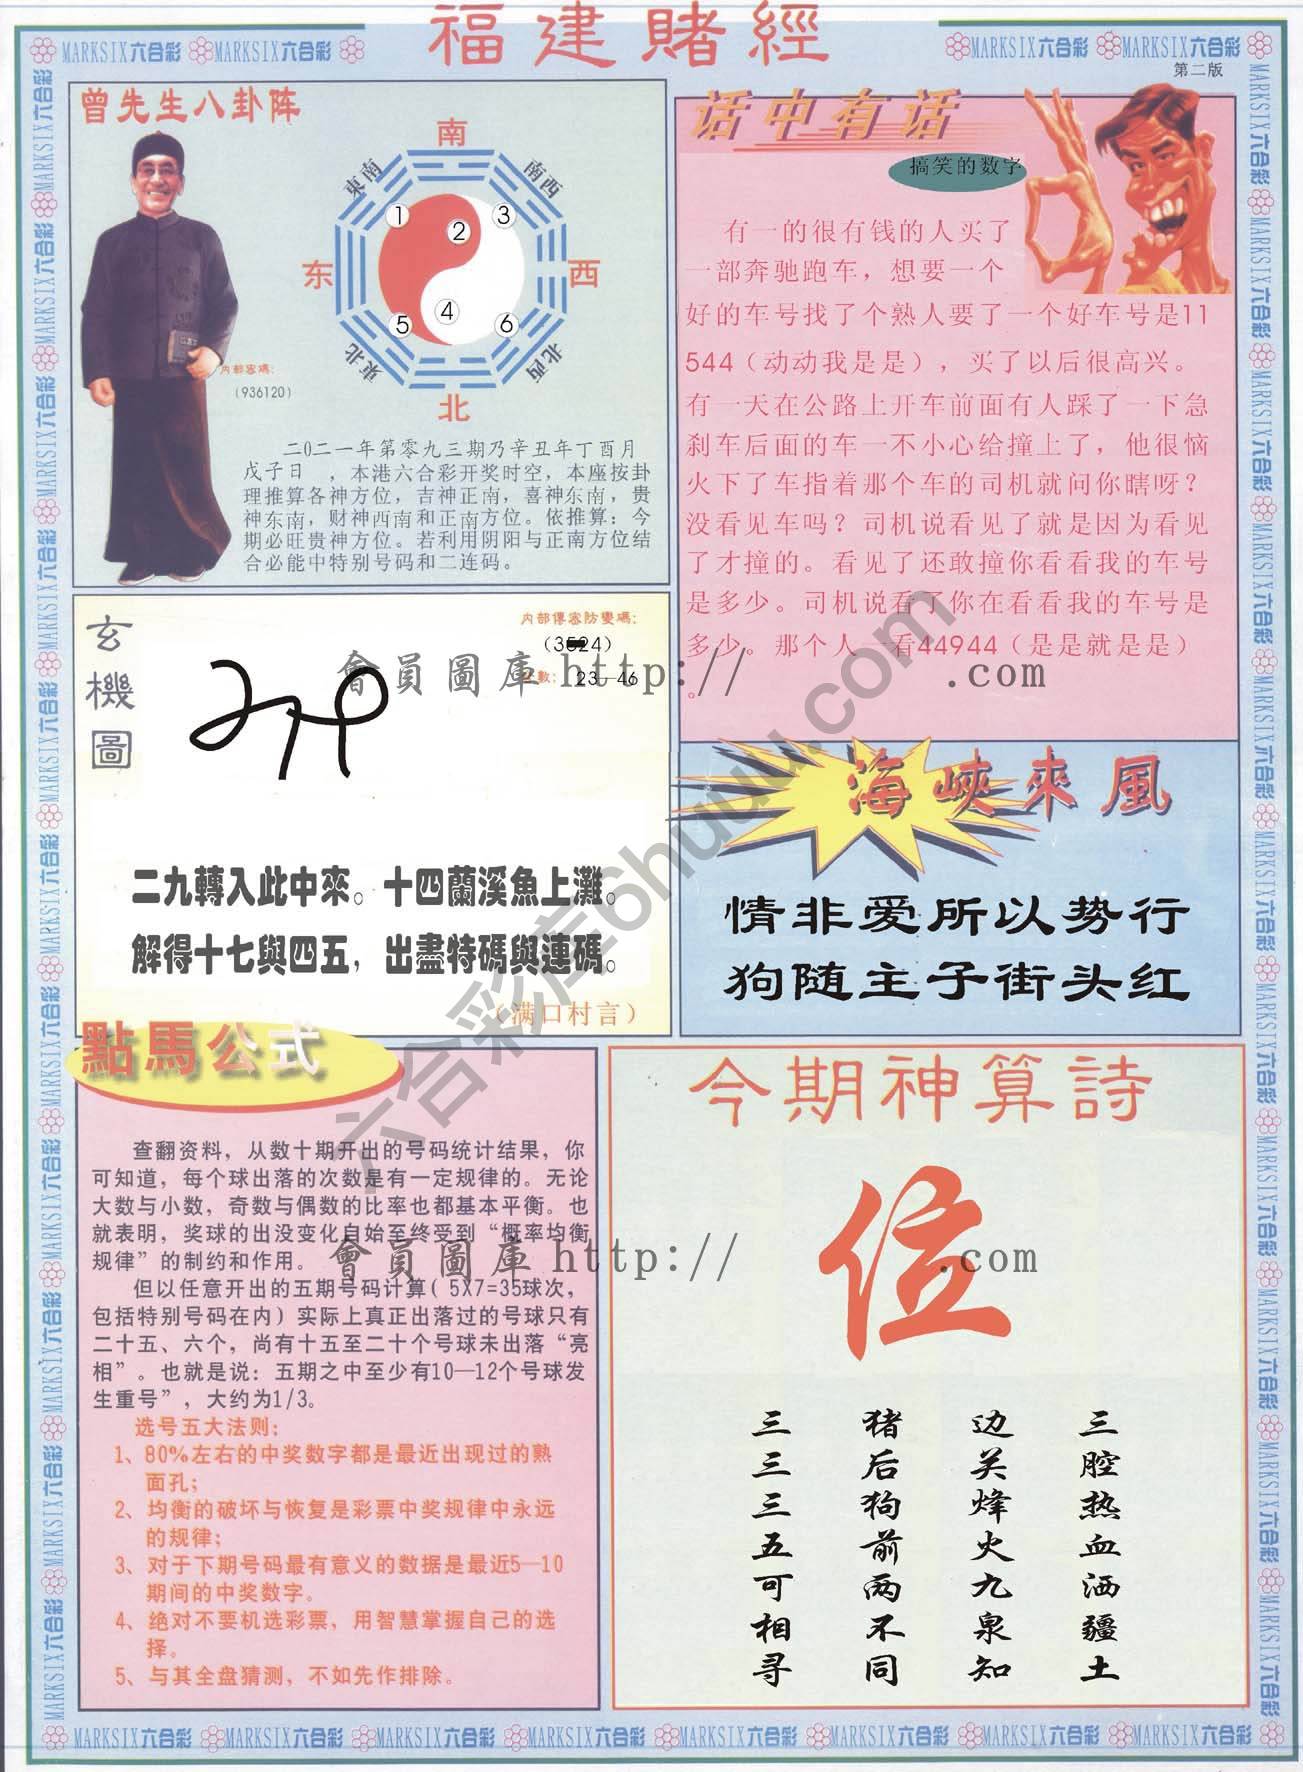 福建賭經
MARKSIX六合彩 MARKSIX六合彩
MARKSIX六合彩 MARKSIX六合彩
第二版
曾先生八卦阵
南
東南
南西
1
2
3
东
西
4
5
6
東北
北西
北
内部密碼:
(936120)
二〇二一年第零九三期乃辛丑年丁酉月
戊子日 ,本港六合彩开奖时空,本座按卦
理推算各神方位,吉神正南,喜神东南,贵
神东南,财神西南和正南方位。依推算:今
期必旺贵神方位。若利用阴阳与正南方位结
合必能中特别号码和二连码。
话中有话
搞笑的数字
有一的很有钱的人买了
一部奔驰跑车,想要一个
好的车号找了个熟人要了一个好车号是11
544(动动我是是),买了以后很高兴。
有一天在公路上开车前面有人踩了一下急
刹车后面的车一不小心给撞上了,他很恼
火下了车指着那个车的司机就问你瞎呀?
没看见车吗?司机说看见了就是因为看见
了才撞的。看见了还敢撞你看看我的车号
是多少。司机说看了你在看看我的车号是
多少。那个人一看44944(是是就是是)
。
玄機圖
内部傳密防變碼:
(3524)
數: 23—46
會員圖庫 http:// .com
二九轉入此中來。十四蘭溪魚上灘。
解得十七與四五,出盡特碼與連碼。
(满口村言)
海峽來風
情非爱所以势行
狗随主子街头红
六合彩库6huuu.com
點馬公式
查翻资料,从数十期开出的号码统计结果,你
可知道,每个球出落的次数是有一定规律的。无论
大数与小数,奇数与偶数的比率也都基本平衡。也
就表明,奖球的出没变化自始至终受到“概率均衡
规律”的制约和作用。
但以任意开出的五期号码计算(5X7=35球次,
包括特别号码在内)实际上真正出落过的号球只有
二十五、六个,尚有十五至二十个号球未出落“亮
相”。也就是说:五期之中至少有10—12个号球发
生重号”,大约为1/3。
选号五大法则:
1、80%左右的中奖数字都是最近出现过的熟
面孔;
2、均衡的破坏与恢复是彩票中奖规律中永远
的规律;
3、对于下期号码最有意义的数据是最近5—10
期间的中奖数字。
4、绝对不要机选彩票,用智慧掌握自己的选
择。
5、与其全盘猜测,不如先作排除。
會員圖庫 http:// .com
今期神算詩
位
三腔热血洒疆土
边关烽火九泉知
猪后狗前两不同
三三三五可相寻
MARKSIX六合彩 MARKSIX六合彩 MARKSIX六合彩 MARKSIX六合彩 MARKSIX六合彩 MARKSIX六合彩 MARKSIX六合彩 MARKSIX六合彩